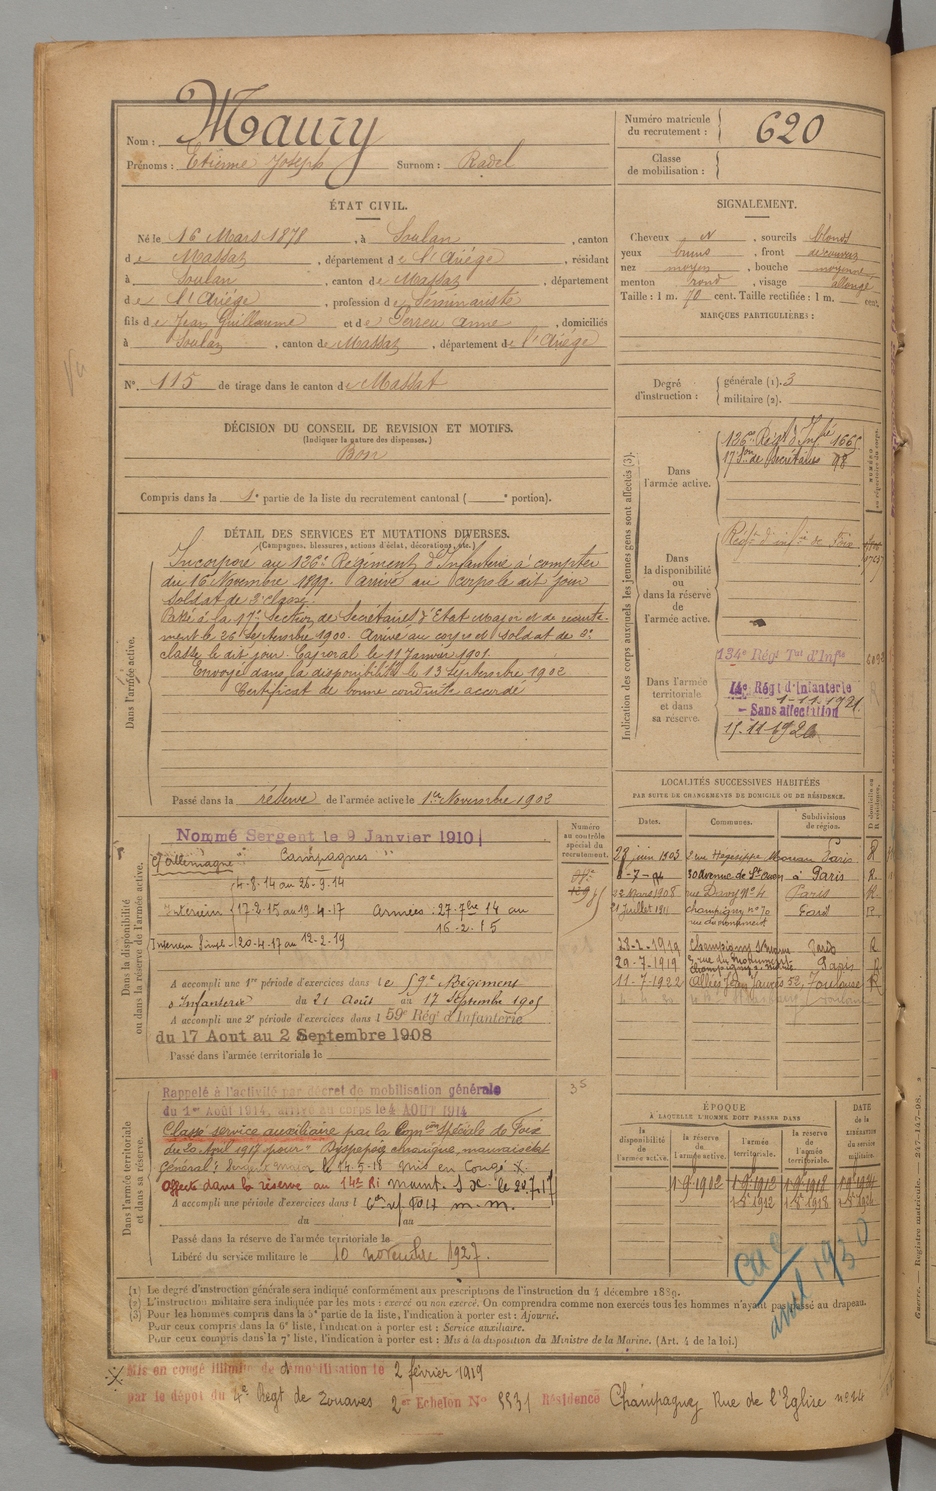 Nom : Maury
Prénoms : Etienne Joseph Surnom : Radel
Numéro matricule du recrutement : 620
Classe de mobilisation :
ÉTAT CIVIL.
Né le 16 Mars 1878, à Soulan, canton
de Massat, département de l'Ariége, résidant
à Soulan, canton de Massat, département
de l'Ariége, profession de Séminariste
fils de Jean Guillaume et de Serreu Anne, domiciliés
à Soulan, canton de Massat, département de l'Ariége
N° 115 de tirage dans le canton de Massat
SIGNALEMENT.
Cheveux N, sourcils blonds
yeux bruns, front découvert
nez moyen, bouche moyenne
menton rond, visage allongé
Taille : 1 m. 70 cent. Taille rectifiée : 1 m. cent.
MARQUES PARTICULIÈRES :
Degré d'instruction : générale (1). 3
militaire (2).
DÉCISION DU CONSEIL DE REVISION ET MOTIFS.
(Indiquer la nature des dispenses.)
Bon
Compris dans la 1e partie de la liste du recrutement cantonal ( portion).
DÉTAIL DES SERVICES ET MUTATIONS DIVERSES.
(Campagnes, blessures, actions d'éclat, décorations, etc.)
Dans l'armée active.
Incorporé au 126e Régiment d'Infanterie à compter
du 16 Novembre 1899. arrivé au corps le dit jour
soldat de 2e classe.
Passé à la 17e Section de Secrétaires d'Etat Major et de recrute-
ment le 26 Septembre 1900. Arrivé au corps et soldat de 2e
classe le dit jour. Caporal le 11 Janvier 1901.
Envoyé dans la disponibilité le 13 Septembre 1902
Certificat de bonne conduite accordé
Passé dans la réserve de l'armée active le 1er Novembre 1902
Indication des corps auxquels les jeunes gens sont affectés (3).
Dans l'armée active.
126e Régt d'Infie 1665
17 Son de Secrétaires 98
Dans la disponibilité ou dans la réserve de l'armée active.
Régt d'infie de Foix
Dans l'armée territoriale et dans sa réserve.
134e Régt Tal d'Infie
14e Régt d'Infanterie
1-11-1921
Sans affectation
15.11.1926
LOCALITÉS SUCCESSIVES HABITÉES
PAR SUITE DE CHANGEMENTS DE DOMICILE OU DE RÉSIDENCE.
Dates. Communes. Subdivisions de région. D domicile ou R résidence.
27 juin 1903 rue Hégésippe Moreau Paris R
30 avenue de St Ouen à Paris R
22 Mars 1908 rue Darcy N° 4 Paris R
21 Juillet 1911 Champigny n° 70 Paris R
rue du monument
28-2-1919 Champigny s/Marne Paris R
29-7-1919 rue du Monument Champigny s. Marne Paris R
11-7-1922 Allées Jean Jaurès 52, Toulouse R
Dans la disponibilité ou dans la réserve de l'armée active.
Numéro au contrôle spécial du recrutement.
Nommé Sergent le 9 Janvier 1910
Campagnes
C/ Allemagne
4-8-14 au 26-9-14
Intérieur 17-2-15 au 19-4-17 Armées : 27-7bre 14 au
16-2-15
Intérieur Simple 20-4-17 au 12-2-19
A accompli une 1re période d'exercices dans le 59e Régiment
d'Infanterie du 21 Août au 17 Septembre 1905
A accompli une 2e période d'exercices dans l 59e Régt d'Infanterie
du 17 Aout au 2 Septembre 1908
Passé dans l'armée territoriale le
Dans l'armée territoriale et dans sa réserve.
Rappelé à l'activité par décret de mobilisation générale
du 1er Août 1914, arrivé au corps le 4 AOUT 1914
Classé service auxiliaire par la Comon Spéciale de Foix
du 20 Avril 1917 pour "Dyspepsie chronique, mauvais état
Général" le 14-5-18 mis en congé X.
Affecté dans la réserve au 14e RI maint. S X. le 20.7.17
A accompli une période d'exercices dans l
du au
Passé dans la réserve de l'armée territoriale le
Libéré du service militaire le 10 novembre 1927.
ÉPOQUE
À LAQUELLE L'HOMME DOIT PASSER DANS
la disponibilité de l'armée active. la réserve de l'armée active. l'armée territoriale. la réserve de l'armée territoriale. DATE DE LA LIBÉRATION DU SERVICE MILITAIRE.
1-9-1902 1-9-1912 1-9-1918 1-9-1924
1-8-1912 1-8-1918 1-8-1924
avril 1930
(1) Le degré d'instruction générale sera indiqué conformément aux prescriptions de l'instruction du 4 décembre 1889.
(2) L'instruction militaire sera indiquée par les mots : exercé ou non exercé. On comprendra comme non exercés tous les hommes n'ayant pas passé au drapeau.
(3) Pour les hommes compris dans la 5e partie de la liste, l'indication à porter est : Ajourné.
Pour ceux compris dans la 6e liste, l'indication à porter est : Service auxiliaire.
Pour ceux compris dans la 7e liste, l'indication à porter est : Mis à la disposition du Ministre de la Marine. (Art. 4 de la loi.)
X Mis en congé illimité de démobilisation le 2 février 1919
par le dépôt du 4e Régt de Zouaves 2e Echelon N° 5531 Résidence Champagney Rue de l'Eglise n° 24
Guerre. — Registre matricule. 247-147-98.